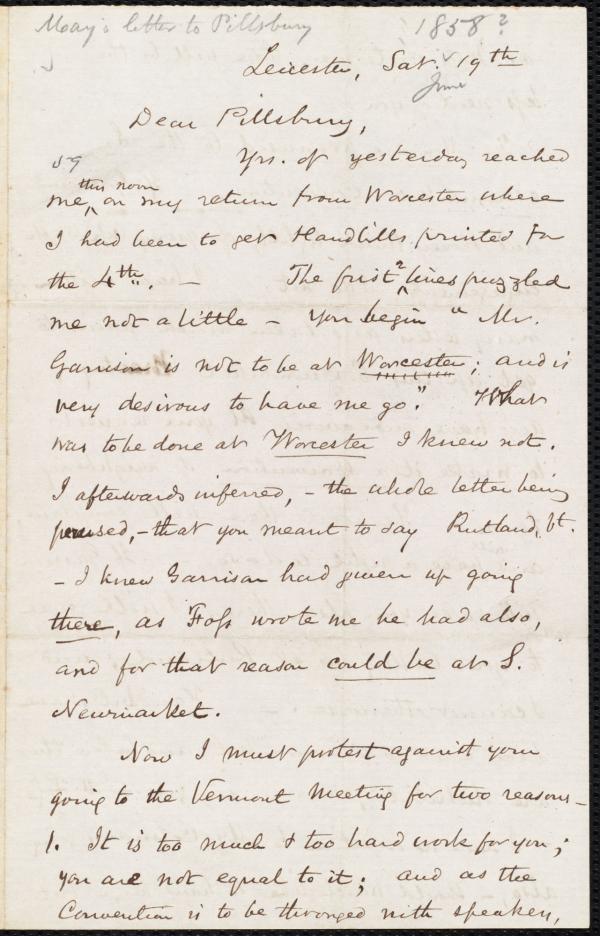 May's letter to Pillsbury 1858?
Leicester, Sat. 19th
June
Dear Pillsbury,
Yrs. of yesterday reached
this noon
me, on my return from Worcester where
I had been to get Handbills printed for
the 4th. – The first 2 lines puzzled
me not a little – You begin "Mr.
Garrison is not to be at Worcester; and is
very desirous to have me go." What
was to be done at Worcester I knew not.
I afterwards inferred, – the whole letter being
perused, – that you meant to say Rutland, Vt.
– I knew Garrison had given up going
there, as Foss wrote me he had also,
and for that reason could be at S.
Newmarket.
Now I must protest against your
going to the Vermont Meeting for two reasons –
1. It is too much & too hard work for you;
you are not equal to it; and as the
Convention is to be thronged with speakers,